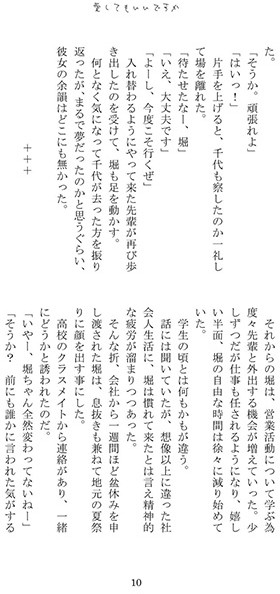 愛してもいいですか
た。
「そうか。頑張れよ」
「はいっ！」
片手を上げると、千代も察したのか一礼し
て場を離れた。
「待たせたなー、堀」
「いえ、大丈夫です」
「よーし、今度こそ行くぜ」
入れ替わるようにやって来た先輩が再び歩
き出したのを受けて、堀も足を動かす。
何となく気になって千代が去った方を振り
返ったが、まるで夢だったのかと思うぐらい、
彼女の余韻はどこにも無かった。
+++
それからの堀は、営業活動について学ぶ為
度々先輩と外出する機会が増えていった。少
しずつだが仕事も任されるようになり、嬉し
い半面、堀の自由な時間は徐々に減り始めて
いた。
学生の頃とは何もかもが違う。
話には聞いていたが、想像以上に違った社
会人生活に、堀は慣れて来たとは言え精神的
な疲労が溜まりつつあった。
そんな折、会社から一週間ほど盆休みを申
し渡された堀は、息抜きも兼ねて地元の夏祭
りに顔を出す事にした。
高校のクラスメイトから連絡があり、一緒
にどうかと誘われたのだ。
「いやー、堀ちゃん全然変わってないねー」
「そうか？　前にも誰かに言われた気がする
10